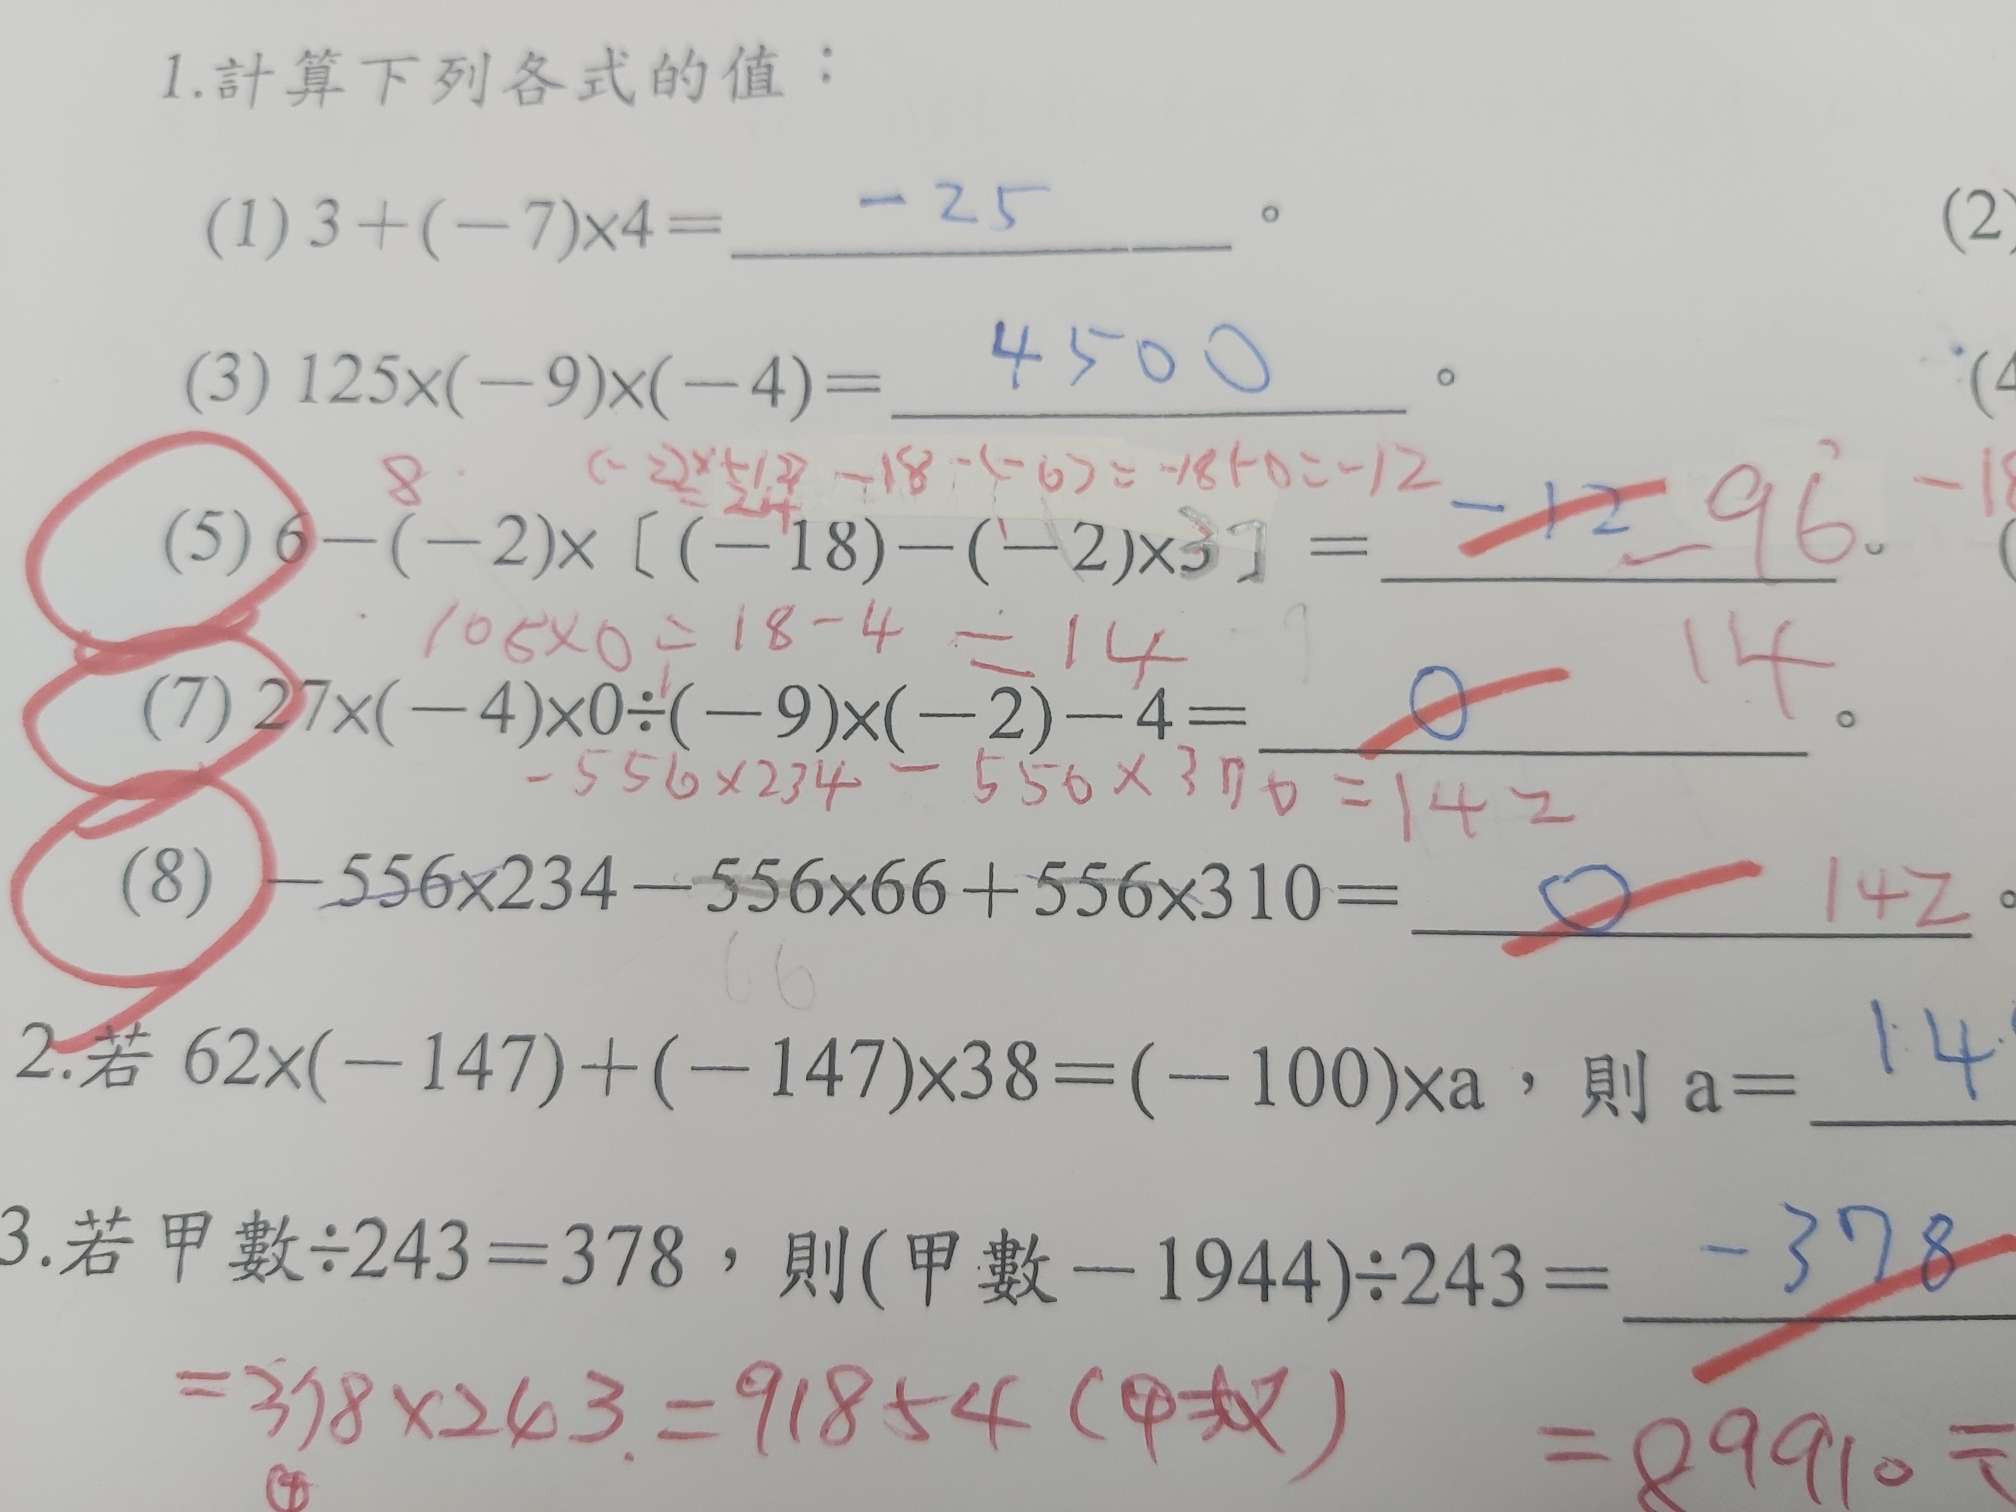 1.計算下列各式的值：
(1) 3＋(－7)×4＝ -25 。
(2)
(3) 125×(－9)×(－4)＝ 4500 。
(4
8 -18-(-6)=-18+6=-12
=24
(5) 6－(－2)×〔(－18)－(－2)×3〕＝ -12 -96 。 -18
=18-4 =14
(7) 27×(－4)×0÷(－9)×(－2)－4＝ 0 14 。
-556×234-556×376=142
(8) －556×234－556×66＋556×310＝ 0 142 。
66
2.若 62×(－147)＋(－147)×38＝(－100)×a，則 a＝ 14
3.若甲數÷243＝378，則(甲數－1944)÷243＝ -378
=378×243.=91854(甲数) =89910=